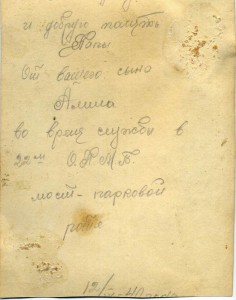 и добрую память
От вашего сына
во время службы в
22м О.К.М.Б.
мост-парковой
роте
12/